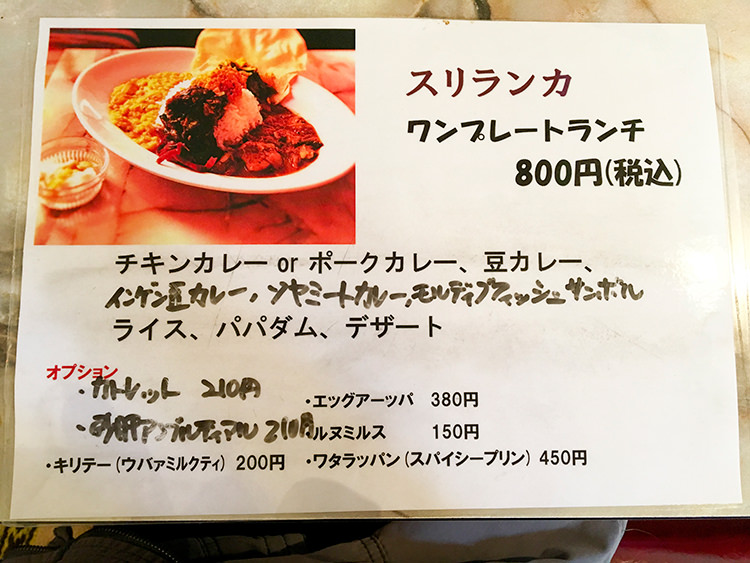 スリランカ
ワンプレートランチ
800円(税込)
チキンカレー or ポークカレー、豆カレー、
インゲン豆カレー、ソヤミートカレー、モルディブフィッシュサンボル
ライス、パパダム、デザート
オプション
・カトレット 210円
・エッグアーッパ 380円
アンブルティヤル 210円
ルヌミルス 150円
・キリテー(ウバァミルクティ) 200円 ・ワタラッパン(スパイシープリン) 450円